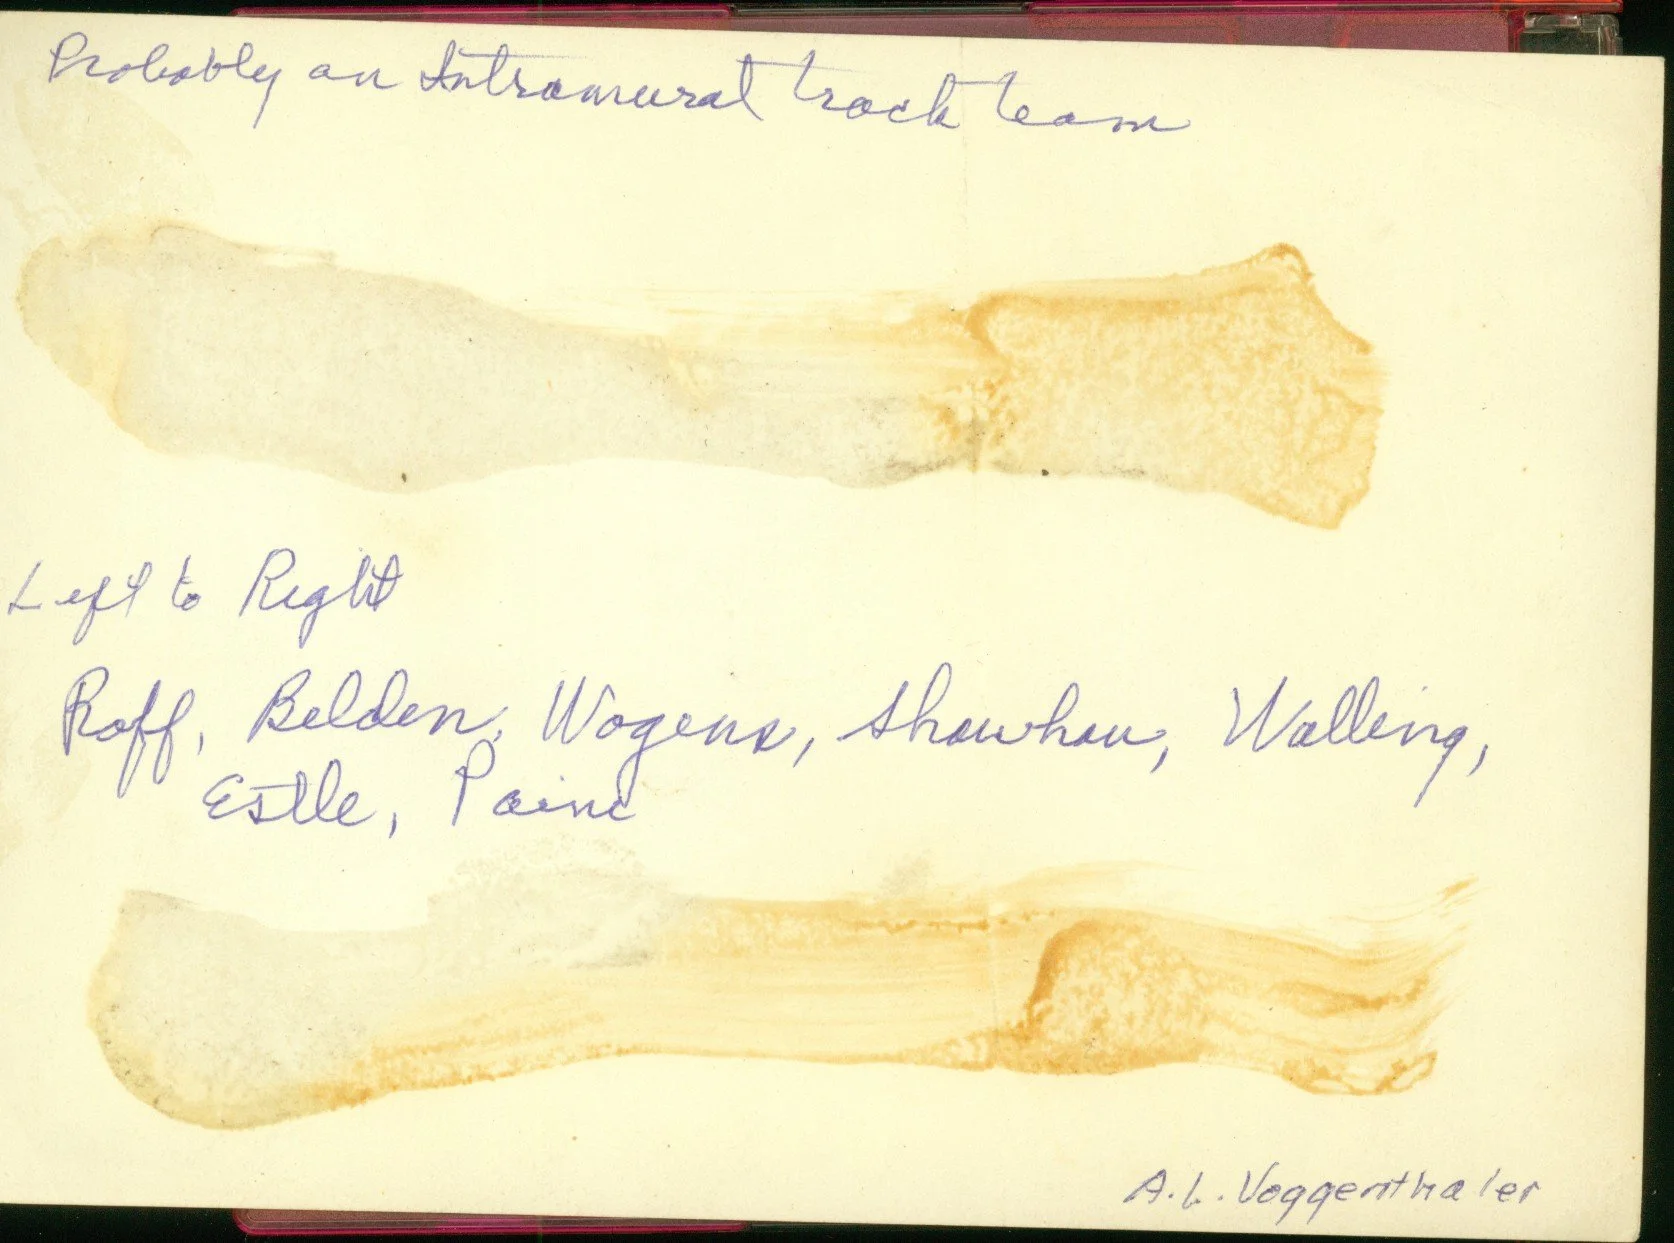 Probably an Intramural track team
Left to Right
Roff, Belden, Wogens, Shawhan, Walling,
Estle, Paine
A. L. Voggenthaler